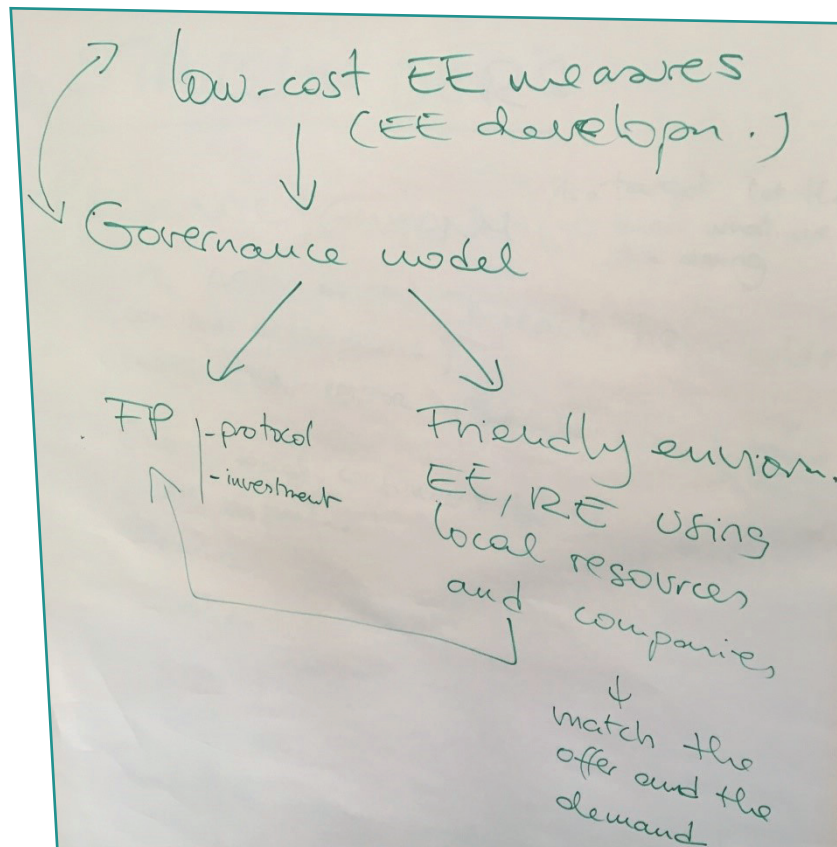 low-cost EE measures
(EE developm.)
Governance model
FP
-protocol
-investment
Friendly environ.
EE, RE using
local resources
and companies
match the
offer and the
demand